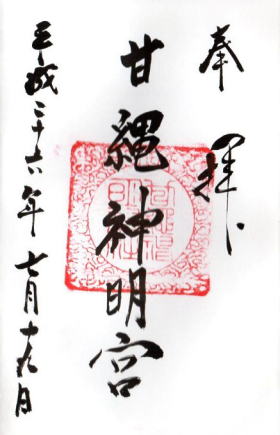 奉拝
甘縄神明宮
平成二十六年七月十九日